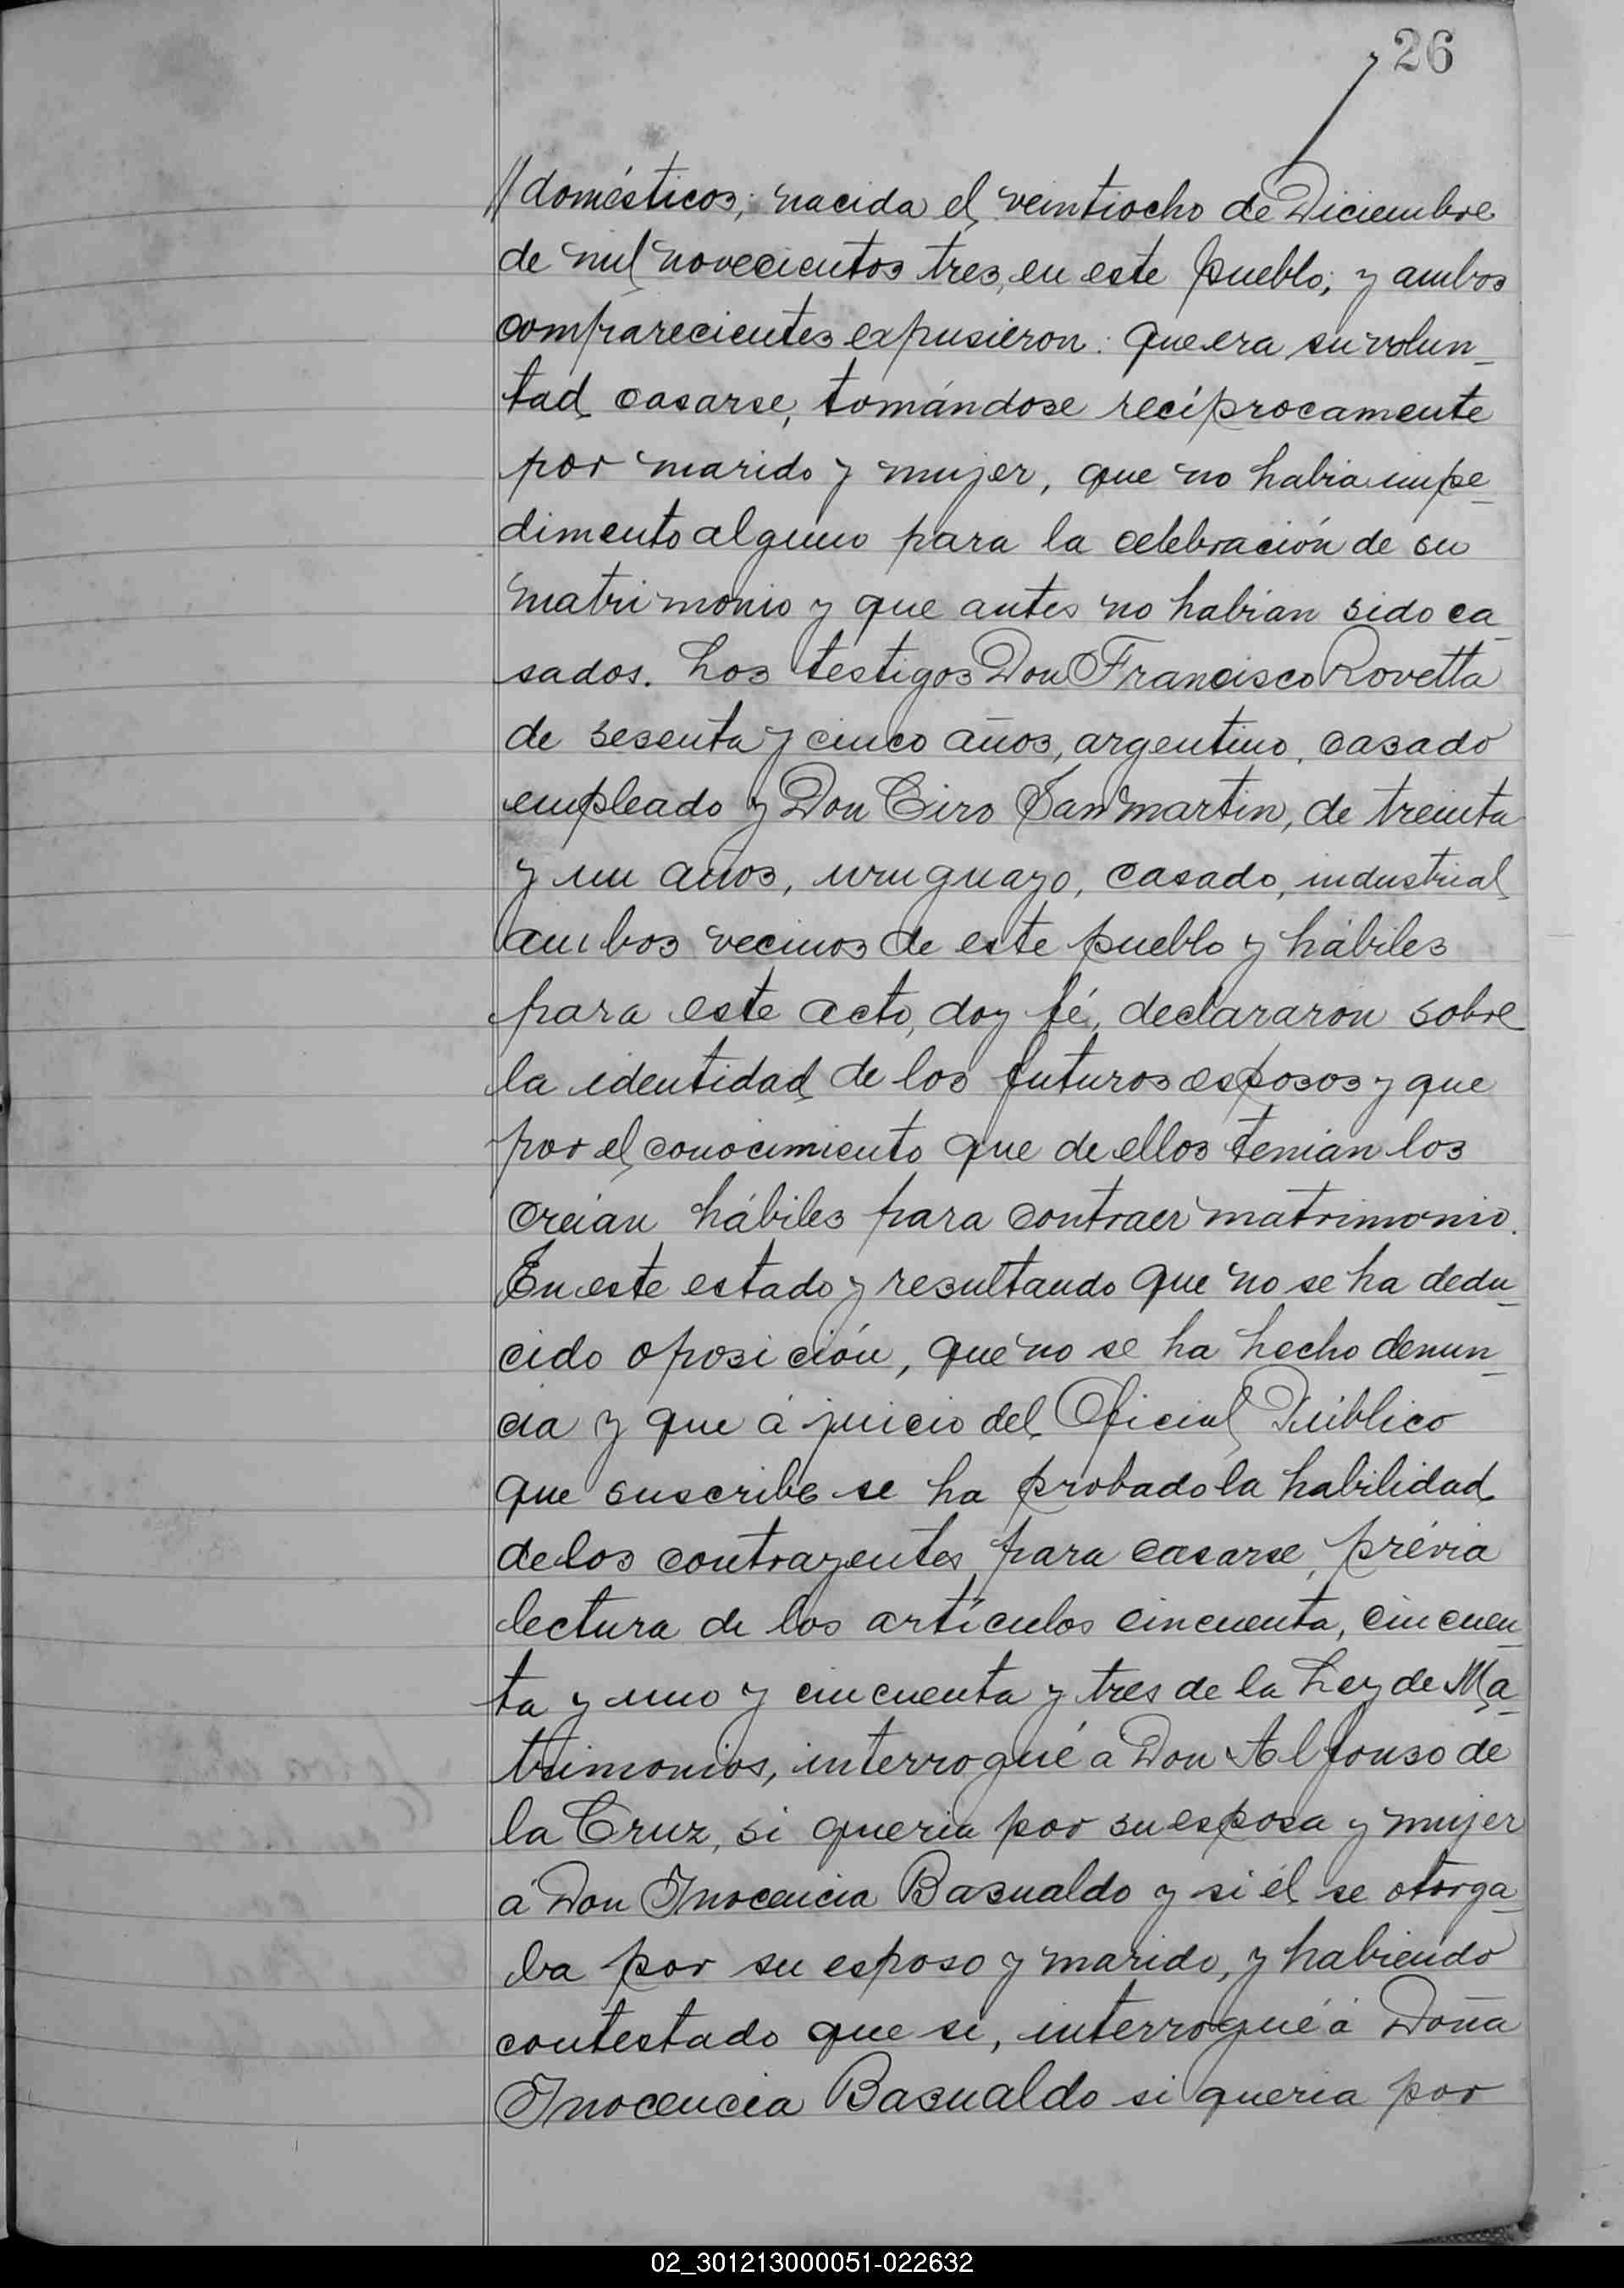 26
// domésticos; nacida el veintiocho de Diciembre
de mil novecientos tres, en este pueblo; y ambos
comparecientes expusieron: que era su volun_
tad casarse, tomándose recíprocamente
por marido y mujer, que no habia impe_
dimento alguno para la celebración de su
matrimonio y que antes no habian sido ca_
sados. Los testigos Don Francisco Rovetta
de sesenta y cinco años, argentino, casado
empleado y Don Ciro Sanmartin, de treinta
y un años, uruguayo, casado, industrial
ambos vecinos de este pueblo y hábiles
para este acto, doy fé, declararon sobre
la identidad de los futuros esposos y que
por el conocimiento que de ellos tenian los
creían hábiles para contraer matrimonio.
En este estado y resultando que no se ha dedu_
cido oposición, que no se ha hecho denun_
cia y que á juicio del Oficial Público
que suscribe se ha probado la habilidad
de los contrayentes para casarse, prévia
lectura de los artículos cincuenta, cincuen_
ta y uno y cincuenta y tres de la Ley de Ma_
trimonios, interrogué á Don Alfonso de
la Cruz, si queria por su esposa y mujer
á Don Inocencia Basualdo y si él se otorga_
ba por su esposo y marido, y habiendo
contestado que si, interrogué á Doña
Inocencia Basualdo si queria por
02_301213000051-022632